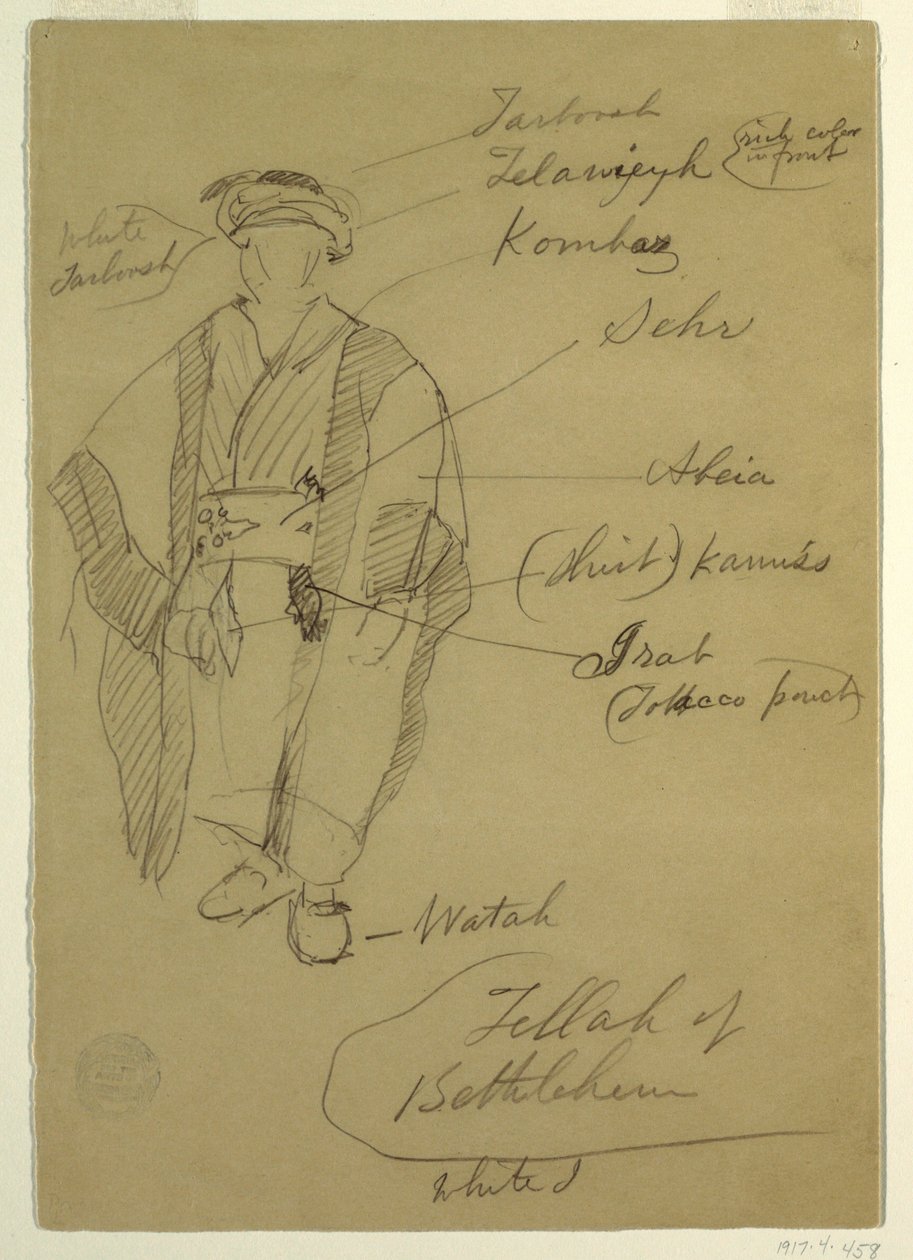 Tarboosh
Zelawijeyh (rich color
in front
White
Tarboosh
Kombaz
Sehr
Abeia
(Shirt) Kamiss
Grab
(Tobacco pouch)
Watah
Fellah of
Bethlehem
White
1917.4.458